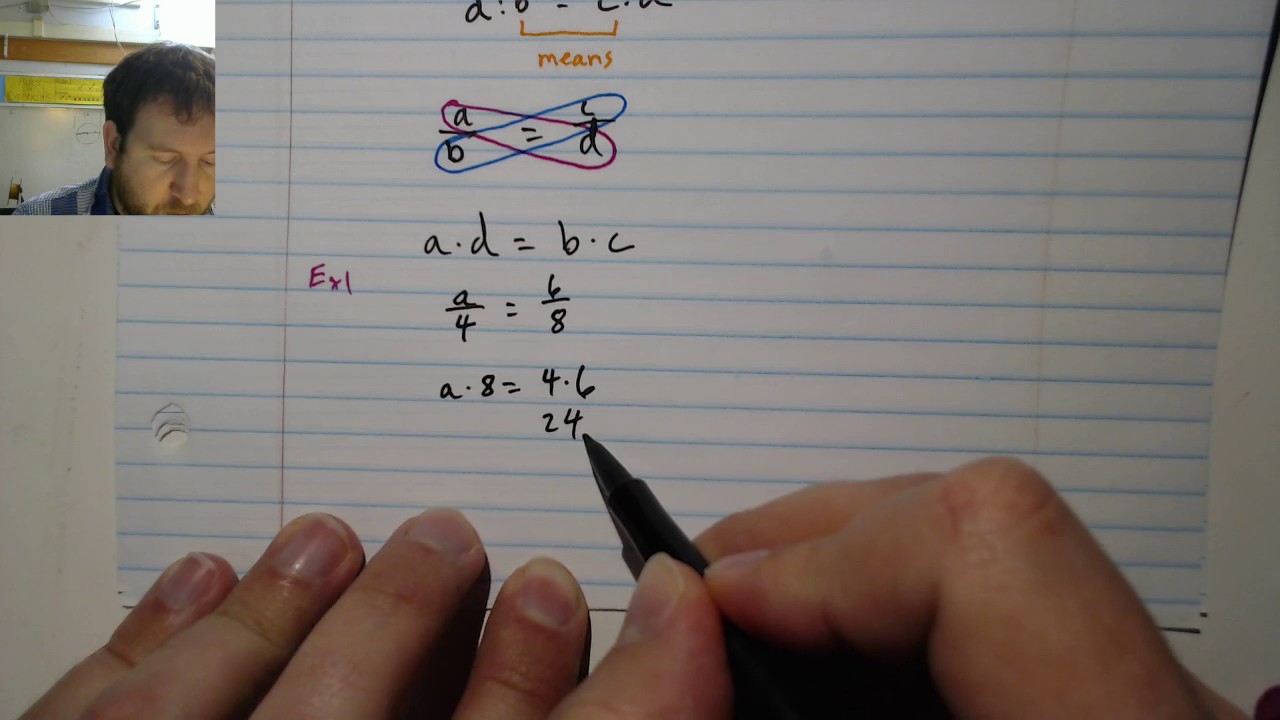 means
a/b = c/d
a·d = b·c
Ex1
a/4 = 6/8
a·8 = 4·6
24